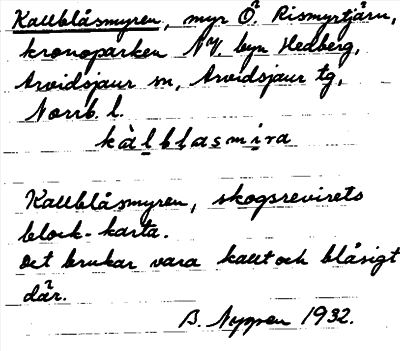 Kallblåsmyren, myr Ö. Rismyrtjärn,
kronoparken NV. byn Hedberg,
Arvidsjaur sn, Arvidsjaur tg,
Norrb. l.
kàlblasmira
Kallblåsmyren, skogsrevirets
block-karta.
Det brukar vara kallt och blåsigt
där.
B. Nyppen 1932.